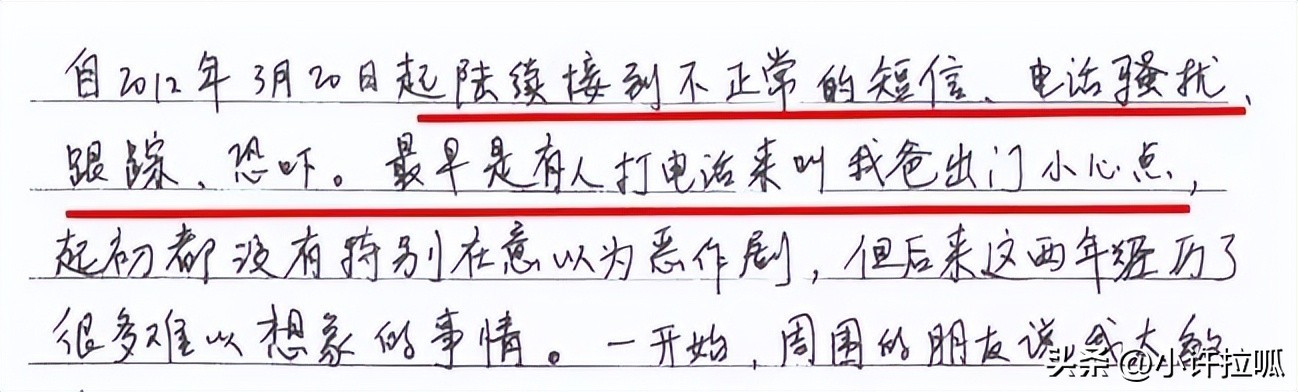 自2012年3月20日起陆续接到不正常的短信、电话骚扰、
跟踪、恐吓。最早是有人打电话来叫我爸出门小心点，
起初都没有特别在意以为恶作剧，但后来这两年经历了
很多难以想象的事情。一开始，周围的朋友说我太
头条 @小许拉呱